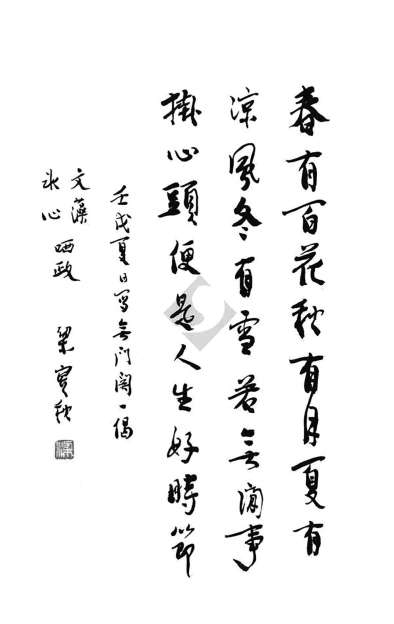 春有百花秋有月夏有
凉風冬有雪若無閑事
掛心頭便是人生好時節
壬戌夏日寫無門關一偈
文藻
冰心
哂政
梁實秋